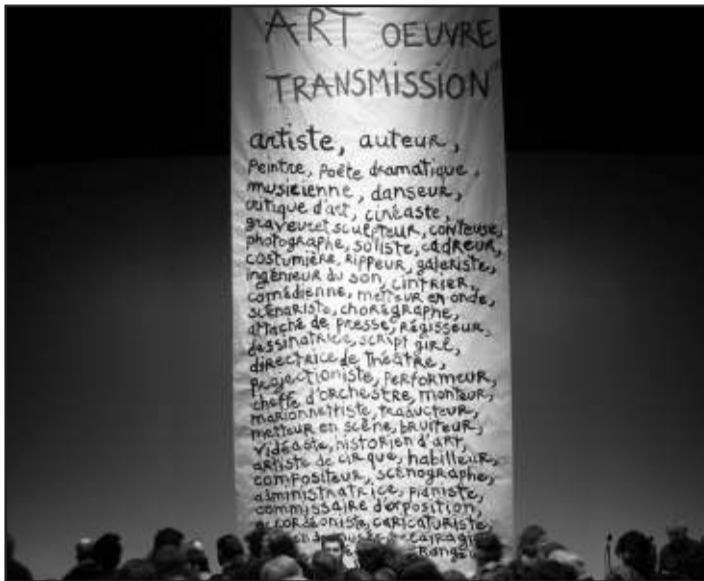 ART OEUVRE
TRANSMISSION
artiste, auteur,
peintre, poète dramatique,
musicienne, danseur,
critique d'art, cinéaste,
graveur et sculpteur, conteuse,
photographe, soliste, cadreur,
costumière, rippeur, galeriste,
ingénieur du son, cintrier,
comédienne, metteur en onde,
scénariste, chorégraphe,
attaché de presse, régisseur,
dessinatrice, script girl,
directrice de théâtre,
projectioniste, performeur,
cheffe d'orchestre, monteur,
marionnettiste, traducteur,
metteur en scène, bruiteur,
vidéaste, historien d'art,
artiste de cirque, habilleur,
compositeur, scénographe,
administratrice, pianiste,
commissaire d'exposition,
accordéoniste, caricaturiste,